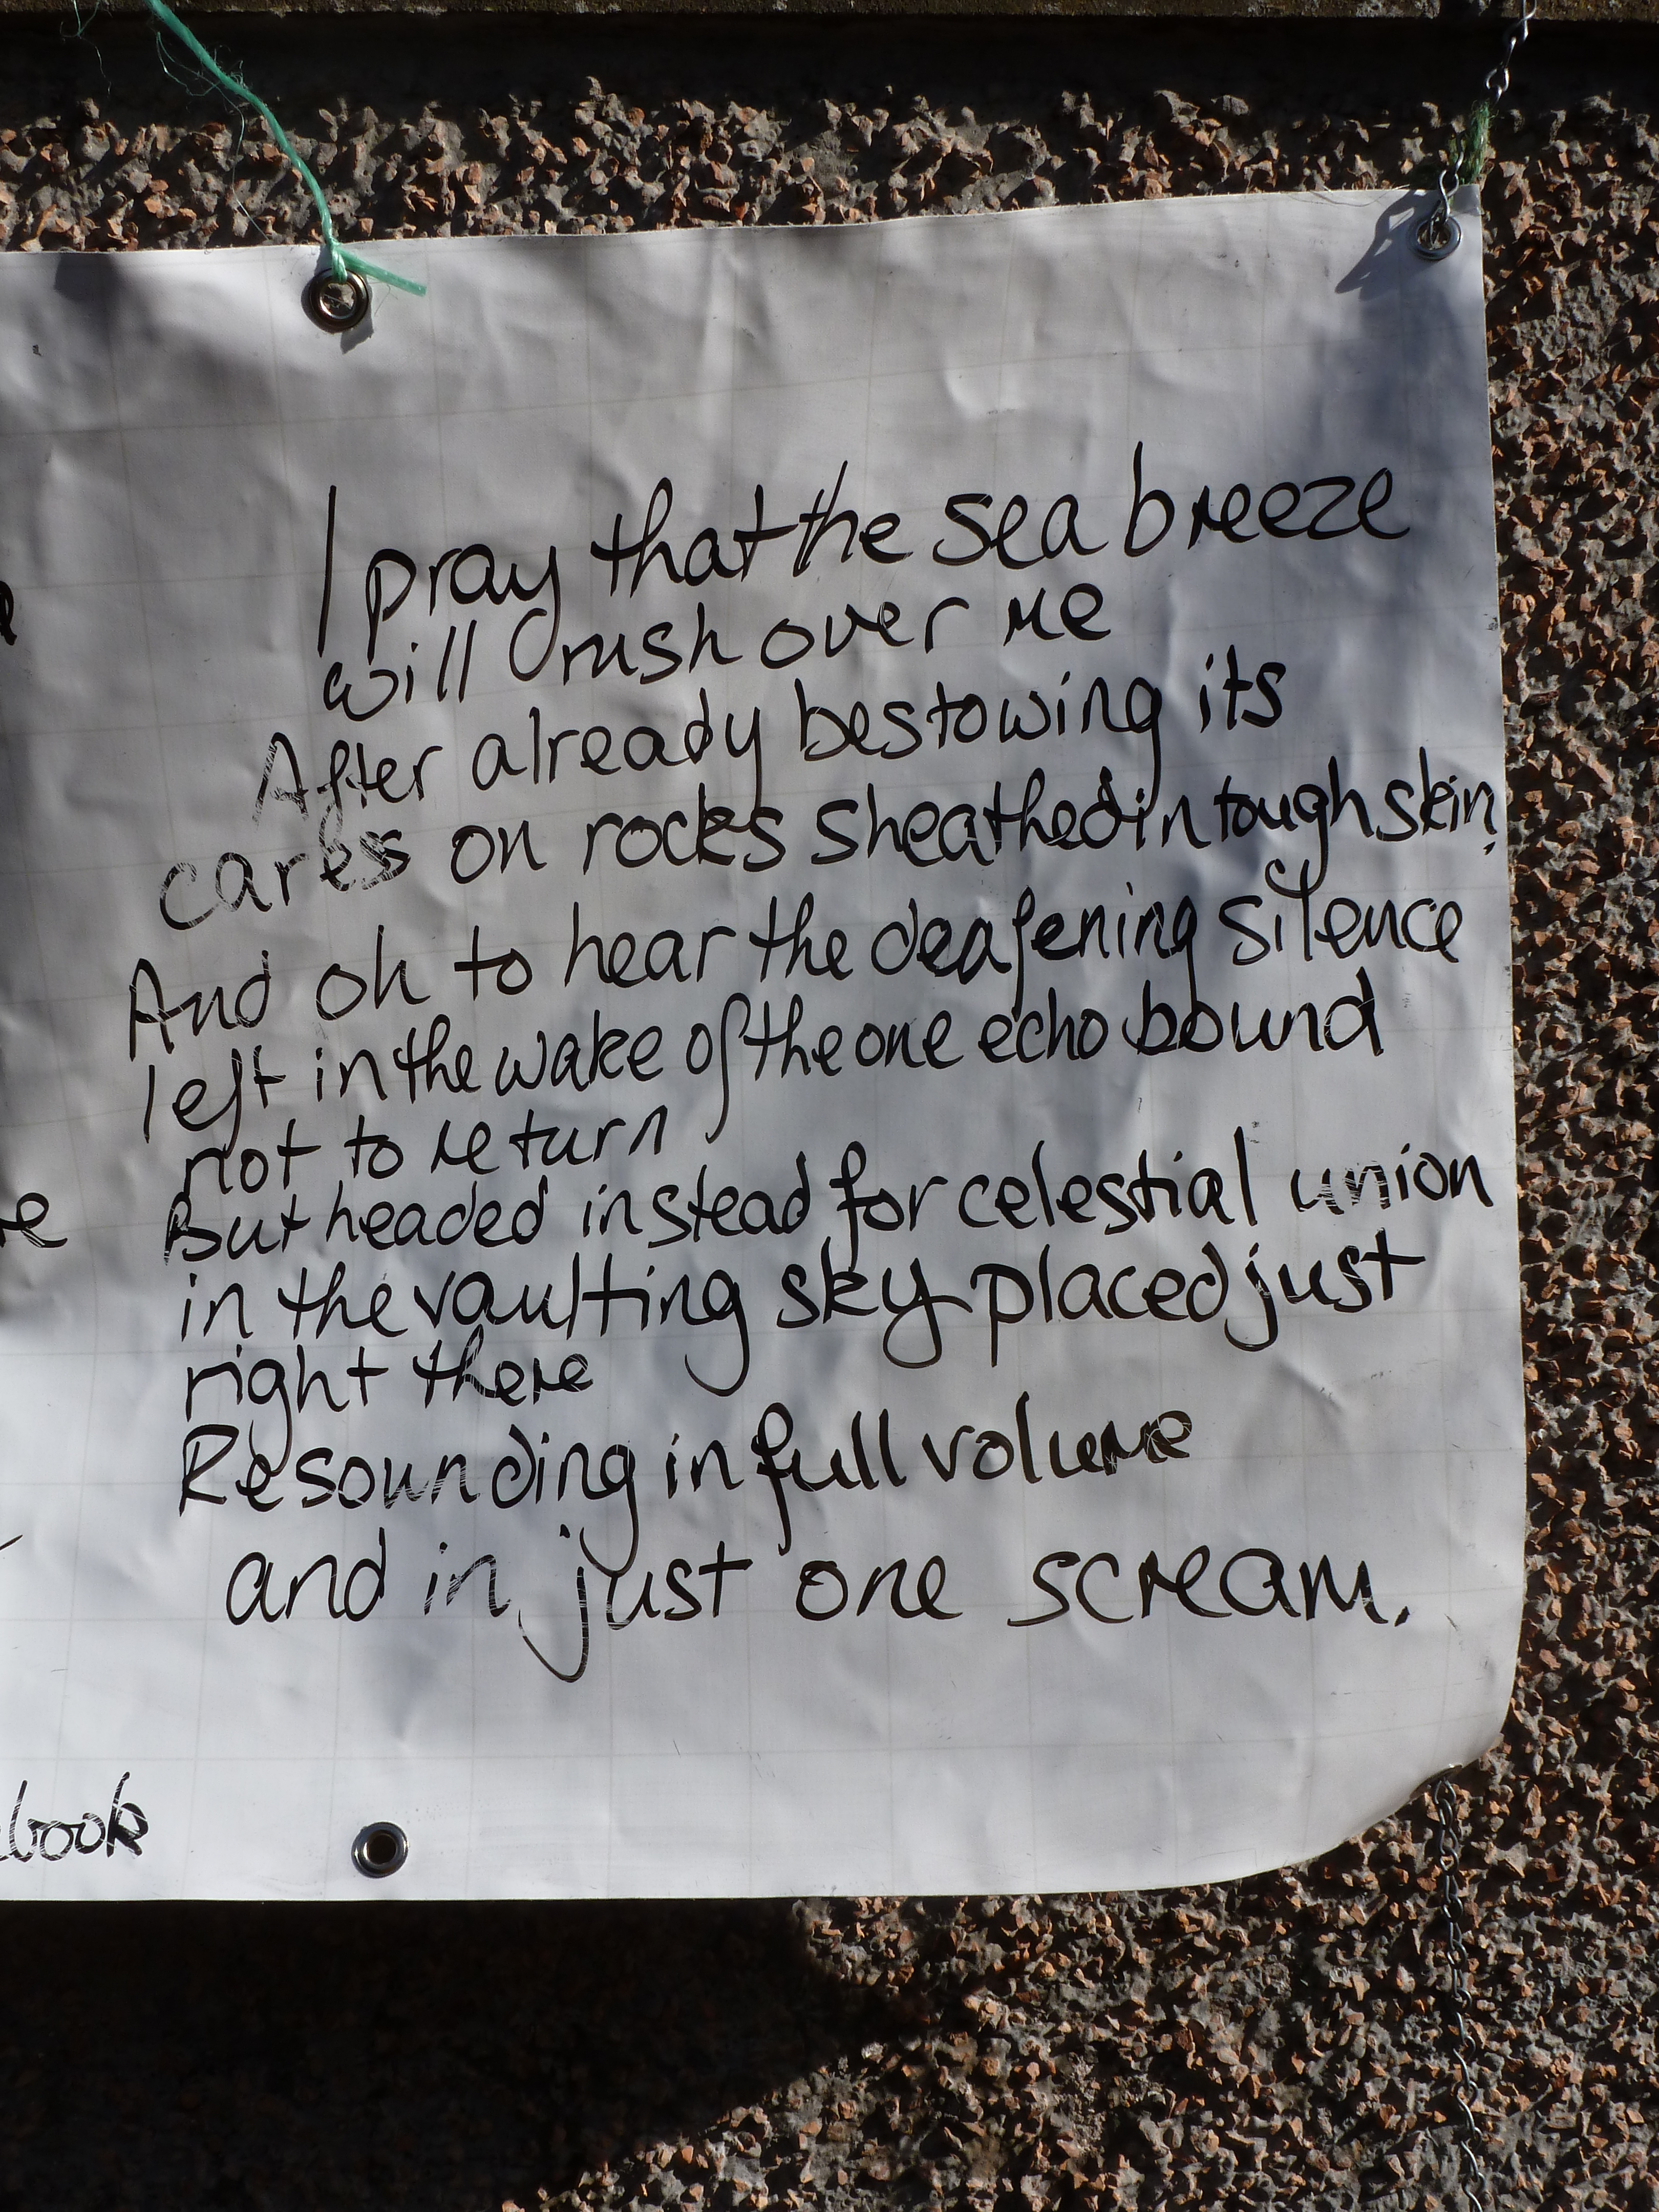 I pray that the sea breeze
will rush over me
After already bestowing its
cares on rocks sheathed in tough skin.
And oh to hear the deafening silence
left in the wake of the one echo bound
not to return
But headed instead for celestial union
in the vaulting sky placed just
right there
Resounding in full volume
and in just one scream.
book